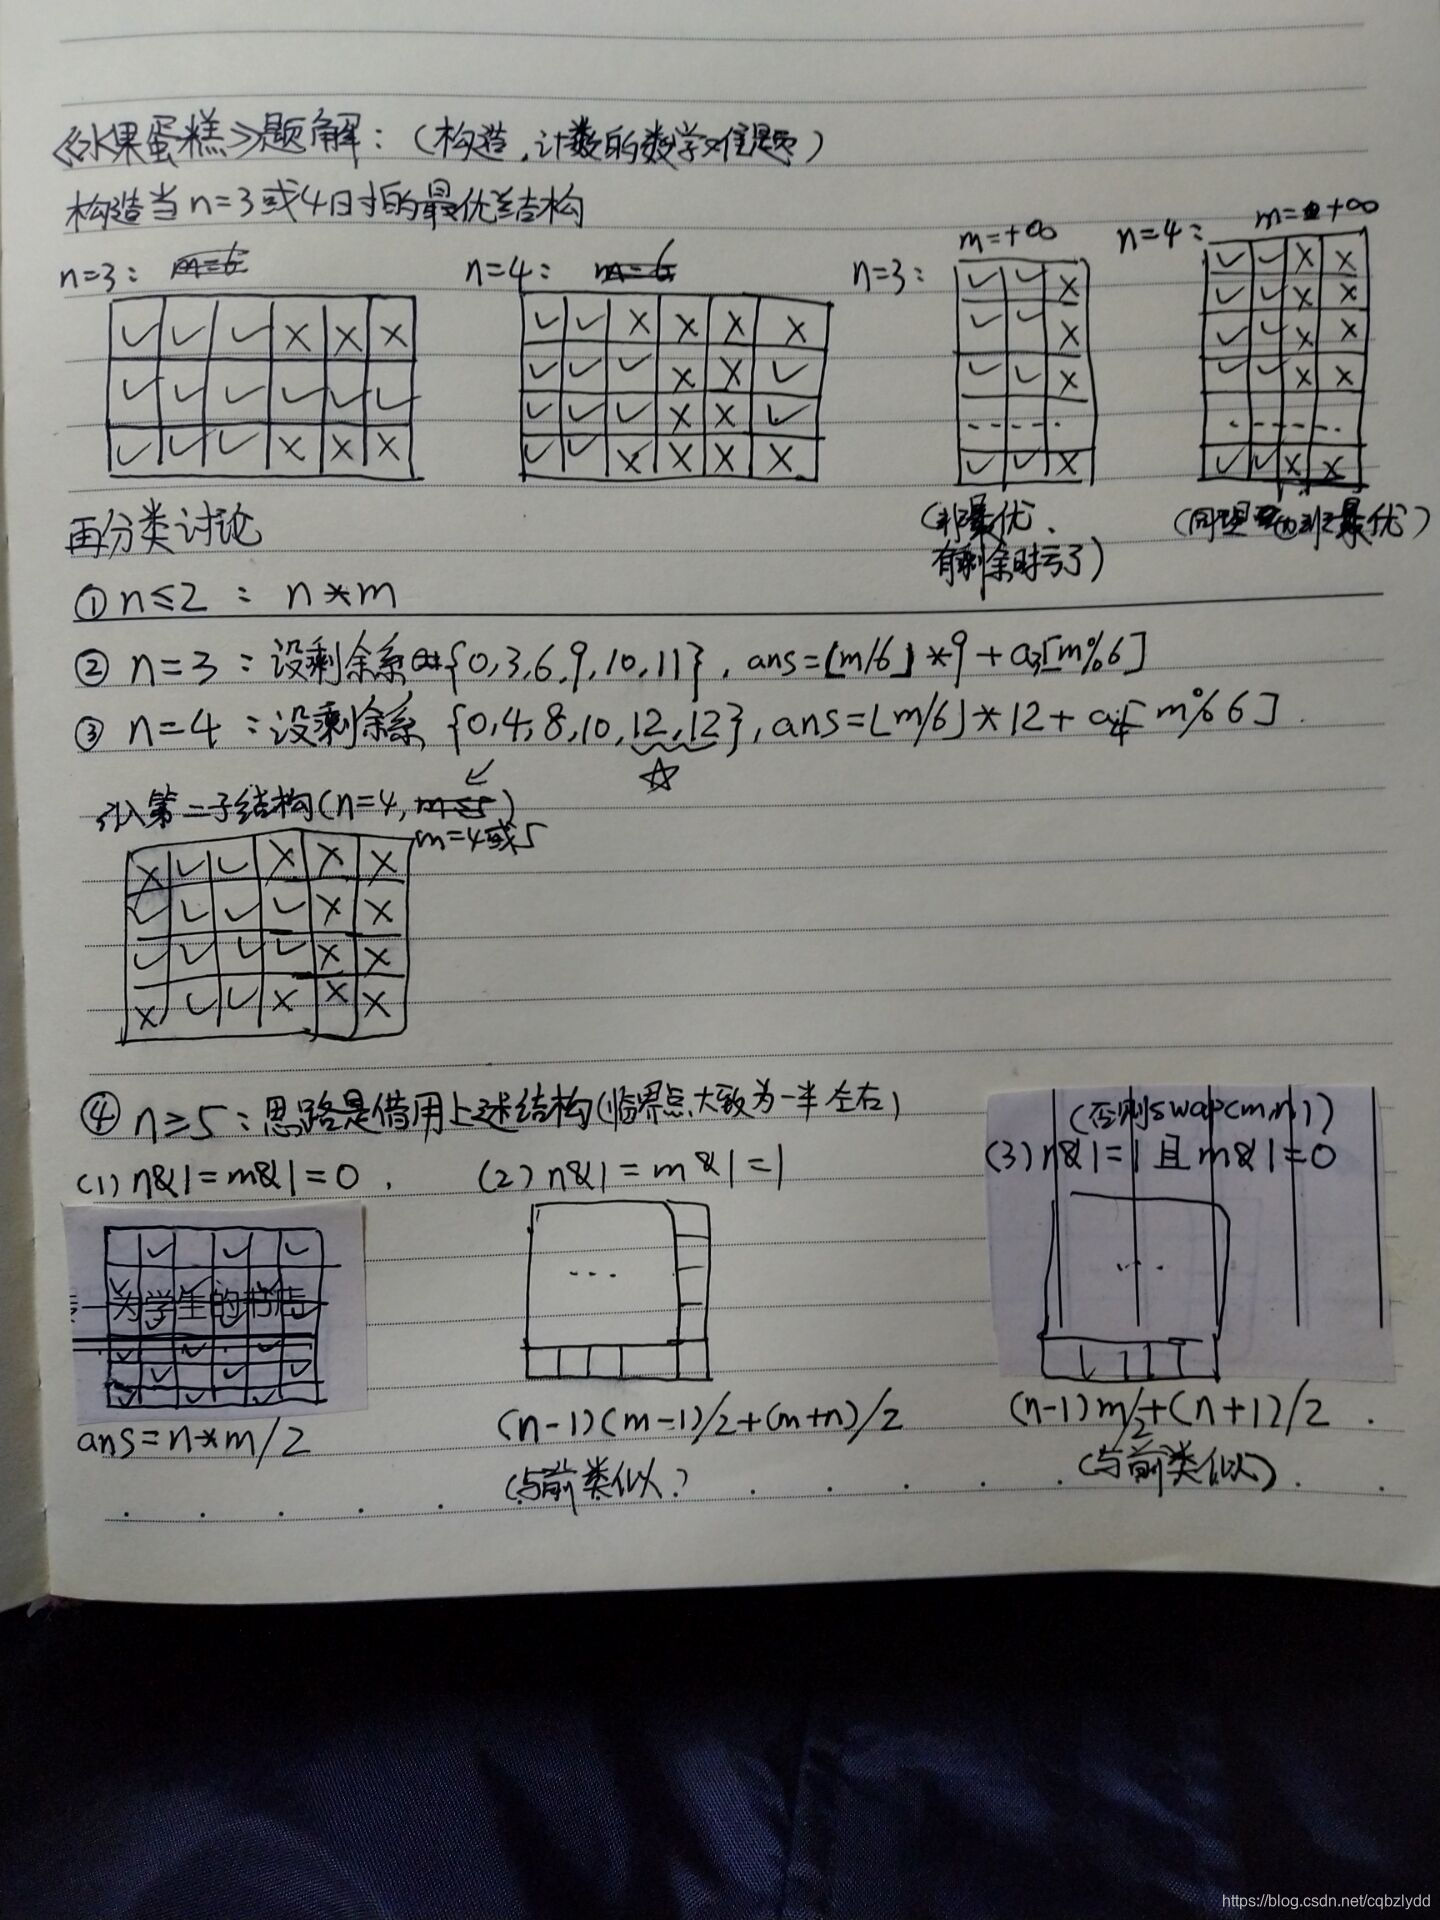 《水果蛋糕》题解：（构造，计数的数学难题）
构造当n=3或4时的最优结构
n=3： m=6
n=4： m=6
n=3： m=+∞
n=4： m=+∞
✓ ✓ ✓ × × ×
✓ ✓ ✓ ✓ ✓ ✓
✓ ✓ ✓ × × ×
✓ ✓ × × × ×
✓ ✓ ✓ × × ✓
✓ ✓ ✓ × × ✓
✓ ✓ × × × ×
✓ ✓ ×
✓ ✓ ×
✓ ✓ ×
.....
✓ ✓ ×
✓ ✓ × ×
✓ ✓ × ×
✓ ✓ × ×
✓ ✓ × ×
.....
✓ ✓ × ×
（非最优、
有剩余时亏了）
（同理 也非最优）
再分类讨论
① n≤2 ： n*m
② n=3 ：设剩余系 {0,3,6,9,10,11}，ans=⌊m/6⌋*9+a₃[m%6]
③ n=4 ：设剩余系 {0,4,8,10,12,12}，ans=⌊m/6⌋*12+a₄[m%6].
☆
引入第二子结构（n=4, m≤5）
m=4或5
× ✓ ✓ × × ×
✓ ✓ ✓ ✓ × ×
✓ ✓ ✓ ✓ × ×
× ✓ ✓ × × ×
④ n≥5：思路是借用上述结构（临界点大致为一半左右）
(1) n&1=m&1=0 .
(2) n&1=m&1=1
（否则swap(m,n)）
(3) n&1=1 且 m&1=0
为学生的书店
...
...
ans=n*m/2
(n-1)(m-1)/2+(m+n)/2
（与前类似）
(n-1)m/2+(n+1)/2 .
（与前类似）
https://blog.csdn.net/cqbzlydd